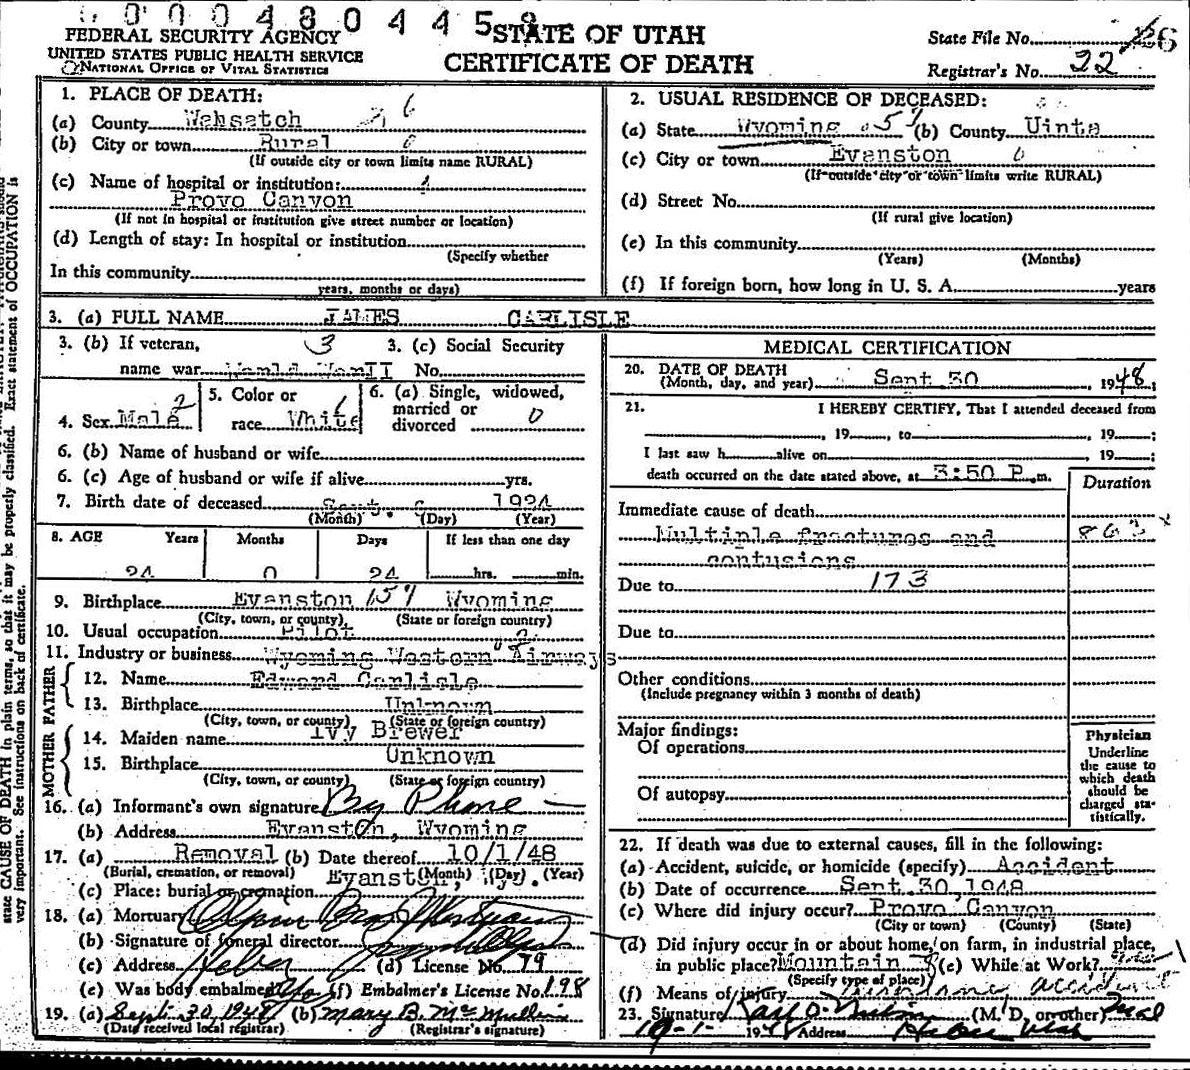 0 0 0 4 8 0 4 4 5
FEDERAL SECURITY AGENCY
UNITED STATES PUBLIC HEALTH SERVICE
NATIONAL OFFICE OF VITAL STATISTICS
STATE OF UTAH
CERTIFICATE OF DEATH
State File No.
Registrar's No. 22
1. PLACE OF DEATH:
(a) County Wahsatch
(b) City or town Rural
(If outside city or town limits name RURAL)
(c) Name of hospital or institution:
Provo Canyon
(If not in hospital or institution give street number or location)
(d) Length of stay: In hospital or institution
(Specify whether
In this community
years, months or days)
2. USUAL RESIDENCE OF DECEASED:
(a) State Wyoming (b) County Uinta
(c) City or town Evanston
(If outside city or town limits write RURAL)
(d) Street No.
(If rural give location)
(e) In this community
(Years) (Months)
(f) If foreign born, how long in U. S. A. years
3. (a) FULL NAME JAMES CARLISLE
3. (b) If veteran, 3 3. (c) Social Security
name war World WarII No.
4. Sex Male 2
5. Color or
race White
6. (a) Single, widowed,
married or
divorced 0
6. (b) Name of husband or wife
6. (c) Age of husband or wife if alive yrs.
7. Birth date of deceased Sept. 6 1924
(Month) (Day) (Year)
8. AGE Years Months Days If less than one day
24 0 24 hrs. min.
9. Birthplace Evanston 151 Wyoming
(City, town, or county) (State or foreign country)
10. Usual occupation Pilot
11. Industry or business Wyoming Western Airways
FATHER
12. Name Edward Carlisle
13. Birthplace Unknown
(City, town, or county) (State or foreign country)
MOTHER
14. Maiden name Ivy Brewer
15. Birthplace Unknown
(City, town, or county) (State or foreign country)
16. (a) Informant's own signature By Phone
(b) Address Evanston, Wyoming
17. (a) Removal (b) Date thereof 10/1/48
(Burial, cremation, or removal) (Month) (Day) (Year)
(c) Place: burial or cremation Evanston, Wyo.
18. (a) Mortuary
(b) Signature of funeral director
(c) Address Heber (d) License No. 79
(e) Was body embalmed (f) Embalmer's License No. 198
19. (a) Sept. 30, 1948 (b) Mary B. McMullin
(Date received local registrar) (Registrar's signature)
MEDICAL CERTIFICATION
20. DATE OF DEATH
(Month, day, and year) Sept 30 1948;
21. I HEREBY CERTIFY, That I attended deceased from
, 19 , to , 19 ;
I last saw h alive on , 19 ;
death occurred on the date stated above, at 3:50 P.m.
Duration
Immediate cause of death
Multiple fractures and
contusions
Due to 173
Due to
Other conditions
(Include pregnancy within 3 months of death)
Major findings:
Of operations
Of autopsy
Physician
Underline
the cause to
which death
should be
charged sta-
tistically.
22. If death was due to external causes, fill in the following:
(a) Accident, suicide, or homicide (specify) Accident
(b) Date of occurrence Sept 30, 1948
(c) Where did injury occur? Provo Canyon
(City or town) (County) (State)
(d) Did injury occur in or about home, on farm, in industrial place,
in public place? Mountain (e) While at Work?
(Specify type of place)
(f) Means of injury accident
23. Signature (M. D. or other)
10-1- 1948 Address Heber Utah
state CAUSE OF DEATH in plain terms, so that it may be properly classified. Exact statement of OCCUPATION is
very important. See instructions on back of certificate.